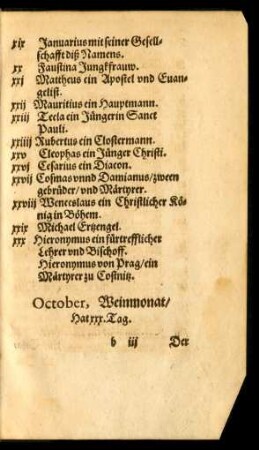 xix Januarius mit seiner Gesell-
schafft diß Namens.
xx Faustina Jungkfrauw.
xxj Mattheus ein Apostel vnd Euan-
gelist.
xxij Mauritius ein Hauptmann.
xxiij Tecla ein Jüngerin Sanct
Pauli.
xxiiij Rubertus ein Clostermann.
xxv Cleophas ein Jünger Christi.
xxvj Cesarius ein Diacon.
xxvij Cosmas vnnd Damianus/ zween
gebrüder/ vnd Märtyrer.
xxviij Wenceslaus ein Christlicher Kö-
nig in Böhem.
xxix Michael Ertzengel.
xxx Hieronymus ein fürtrefflicher
Lehrer vnd Bischoff.
Hieronymus von Prag/ ein
Märtyrer zu Costnitz.
October, Weinmonat/
Hat xxx. Tag.
b iij Der